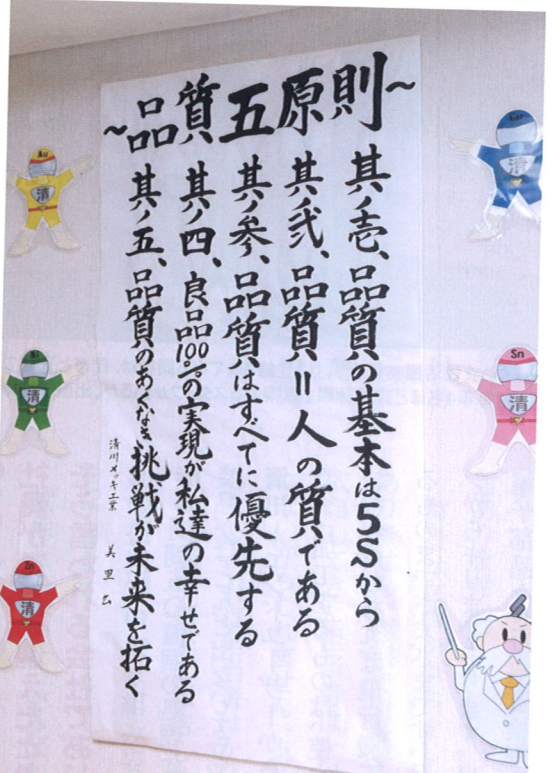 ～品質五原則～
其ノ壱、品質の基本は5Sから
其ノ弐、品質＝人の質である
其ノ参、品質はすべてに優先する
其ノ四、良品100%の実現が私達の幸せである
其ノ五、品質のあくなき挑戦が未来を拓く
清川メッキ工業
美里
Au
清
清
清
Sn
清
清